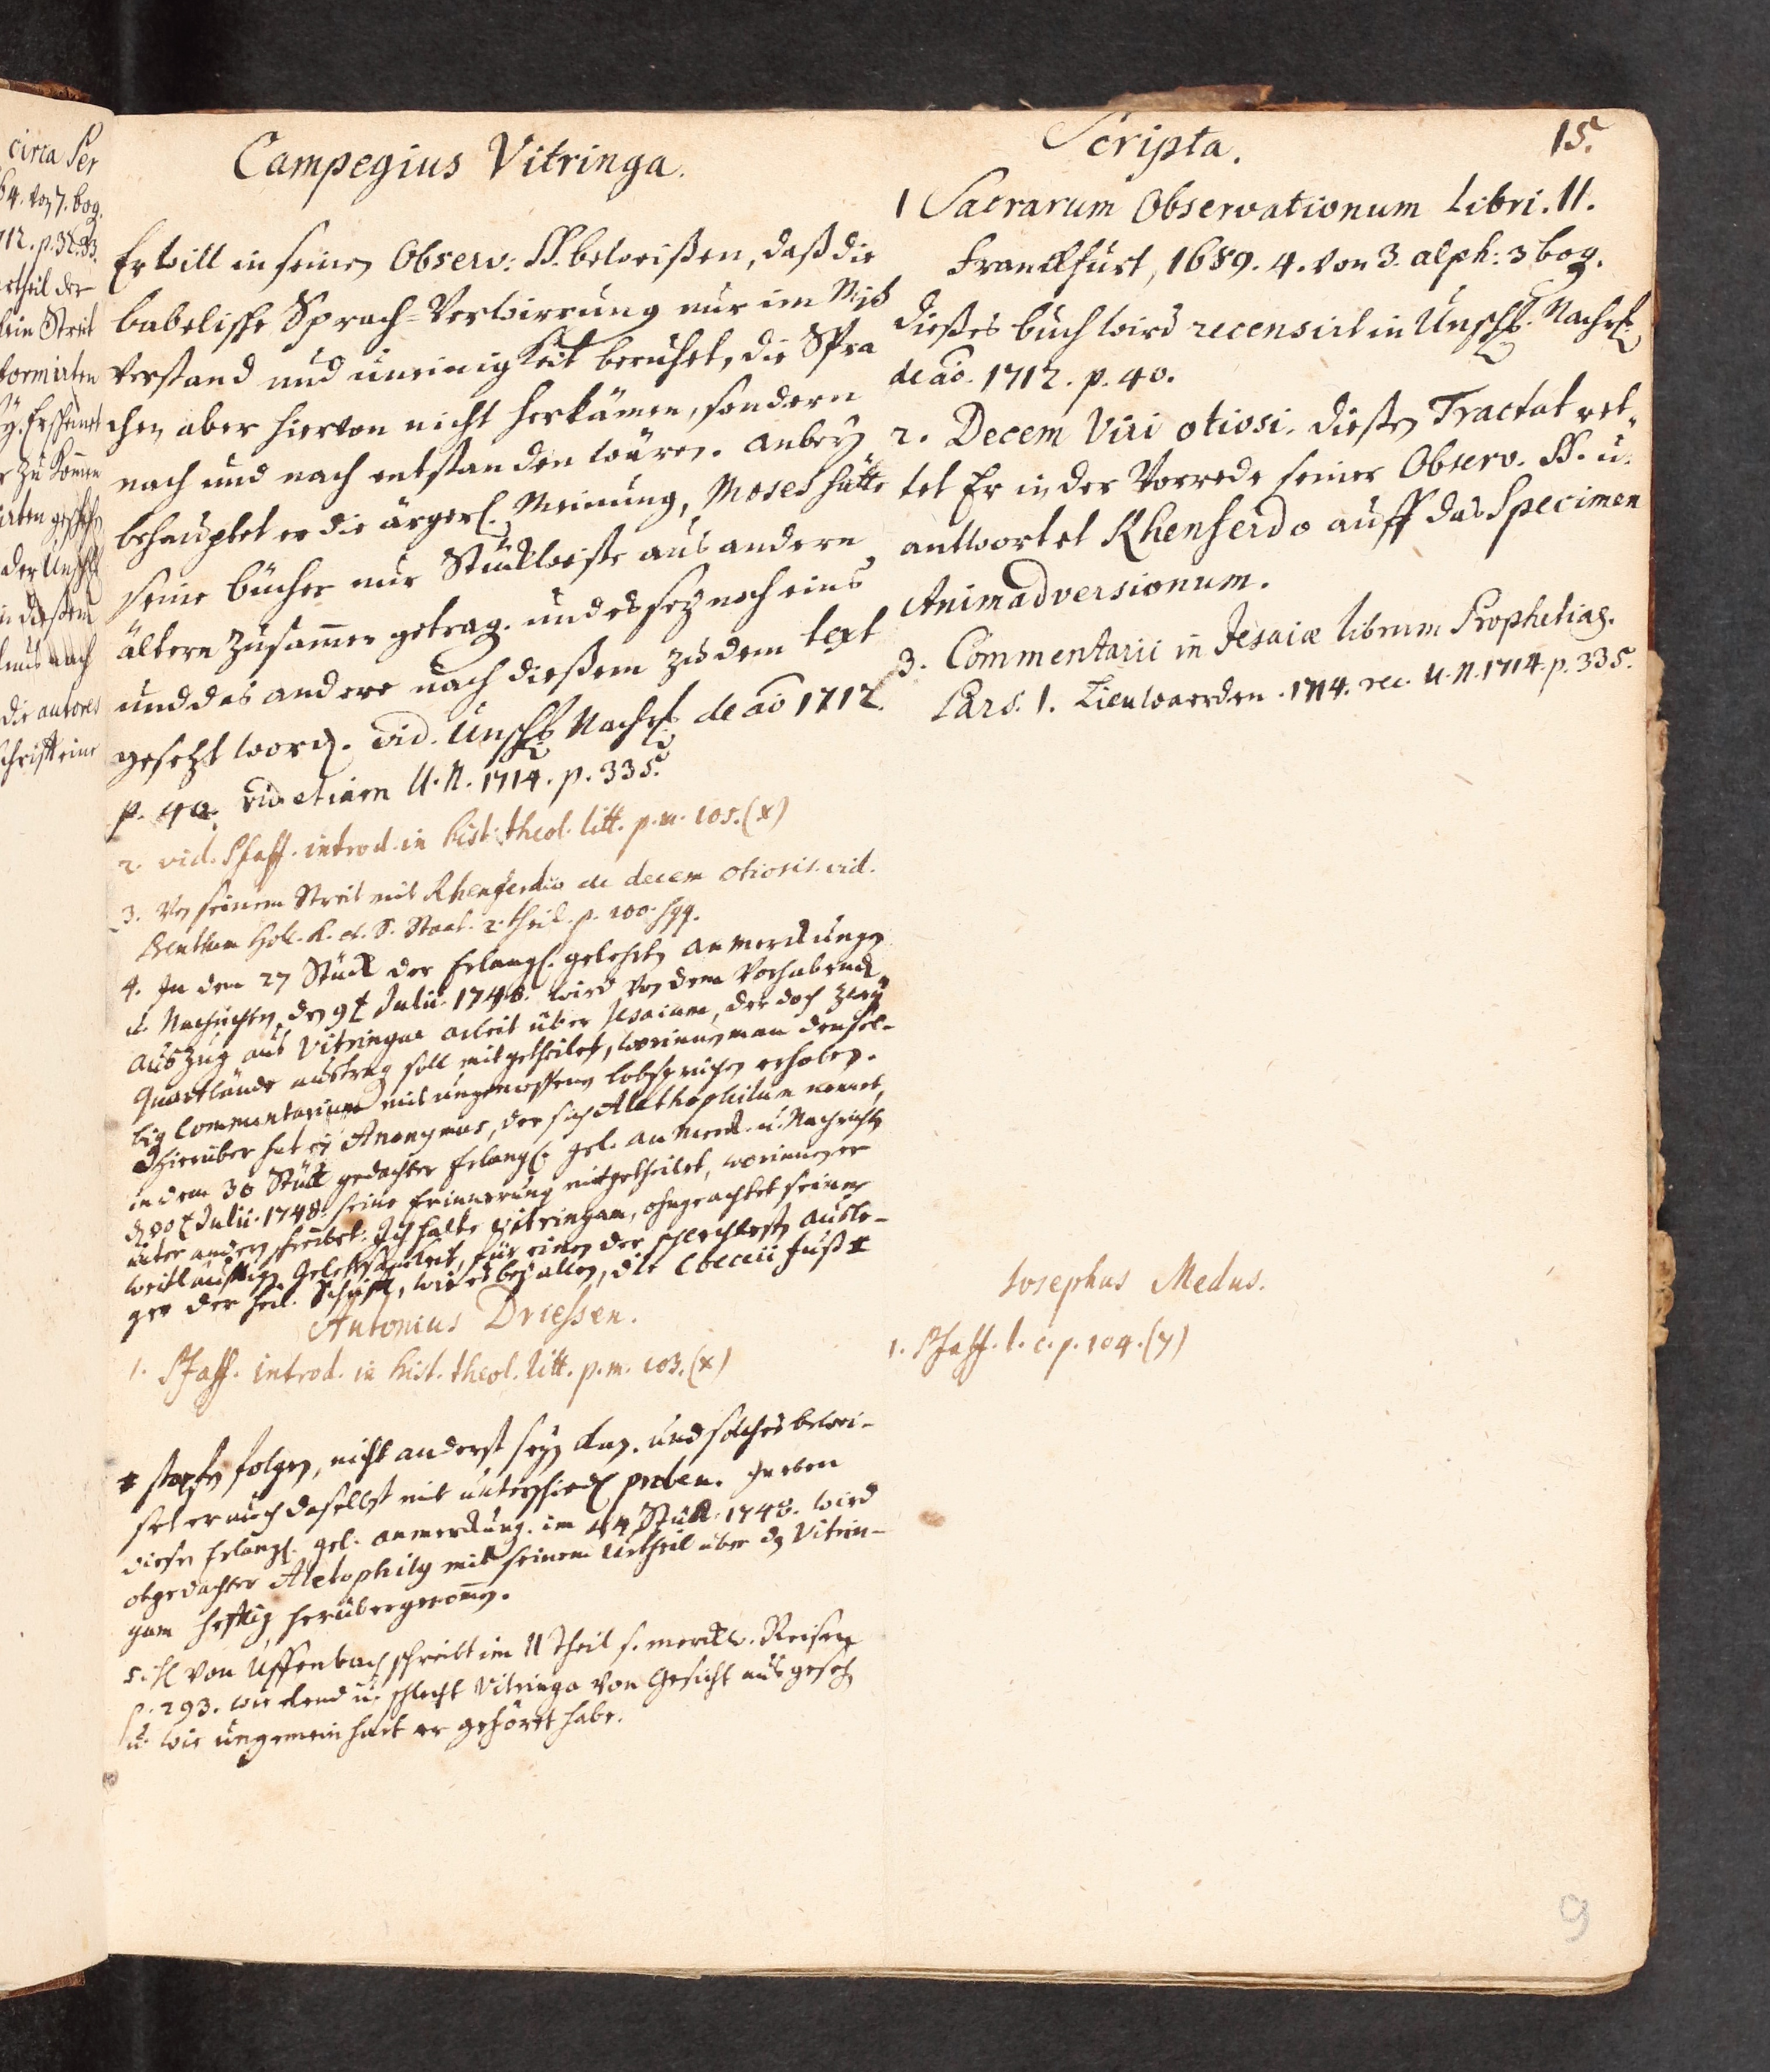 Campegius Vitringa.
Er will in seinen Observ: SS. beweißen, daß die
babelische Sprach-Verwirrung nur im Miß
verstand und uneinigkeit beruhet, die Spra
chen aber hiervon nicht herkämen, sondern
nach und nach entstanden wären. anbey
behauptet er die ärgerl. Meinung, Moses hätte
seine bücher nur Stückweise aus andern
ältern zusamen getrag. und es sey noch eins
und das andere nach dießem zu dem text
gesetzt word. vid. Unsch. Nachr. de ao 1712.
p. 40. vid etiam U. N. 1714. p. 335.
2. vid. Pfaff. introd. in hist. theol. litt. p. m. 105. (x)
3. Von seinem Streit mit Rhenferdio de decem otiosis vid.
Benthem Holl. K. et. S. Staat. 2. theil. p. 100. sqq.
4. In dem 27 Stück der Erlang. gelehrten anmerckungen
u. Nachrichten, den 9t Julii. 1748. wird von dem Vorhabend
auszug aus Vitringae arbeit über Jesaiam, der doch zwey
Quartbände austrag soll mitgetheilet, worinnen man densel-
big Commentarium mit ungemessenen lobsprüchen erhoben.
Hierüber hat ein Anonymus, der sich Alethophilum nennet,
in dem 30 Stück gedachter Erlang. gel. anmerck. u. Nachrichten
d. 30t Julii. 1748. seine Erinnerung mitgetheilet, worinnen er
unter andern schreibet: Ich halte Vitringam, ohngeachtet seiner
weitläuftigen Gelehrsamkeit, für einen der schlechtesten ausle-
ger der heil. Schrifft, wie es bey allen, die Cocceii fuß #
Antonius Driessen.
1. Pfaff. introd. in hist. theol. litt. p. m. 103. (x)
# stapfen folgen, nicht anderst seyn kan. und solches bewei-
set er auch daselbst mit unterschied. proben. In eben
diesen Erlang. gel. anmerckung. im 44 Stück. 1748. wird
obgedachter Aletophily mit seinem Urtheil über den Vitrin-
gam hefftig herübergenomen.
5. H. von Uffenbach schreibt im II Theil s. merckw. Reisen
p. 293. wie elend u. schlecht Vitringa von Gesicht ausgeseh
u. wie ungemein hart er gehöret habe.
Scripta.
15.
1 Sacrarum Observationum Libri. II.
Franckfurt, 1689. 4. von 3. alph: 3 bog.
dießes buch wird recensirt in Unsch. Nachr.
de ao. 1712. p. 40.
2. Decem Viri otiosi. dießen Tractat ret-
tet Er in der Vorrede seiner Observ. SS. u.
antwortet Rhenferdo auff das Specimen
Animadversionum.
3. Commentarii in Jesaiae librum Prophetiar.
Pars. 1. Lieuwaerden. 1714. rec. U. N. 1714. p. 335.
Iosephus Medus.
1. Pfaff. l. c. p. 104. (y)
9
circa Ser
64. von 7. bog.
712. p. 32. 33.